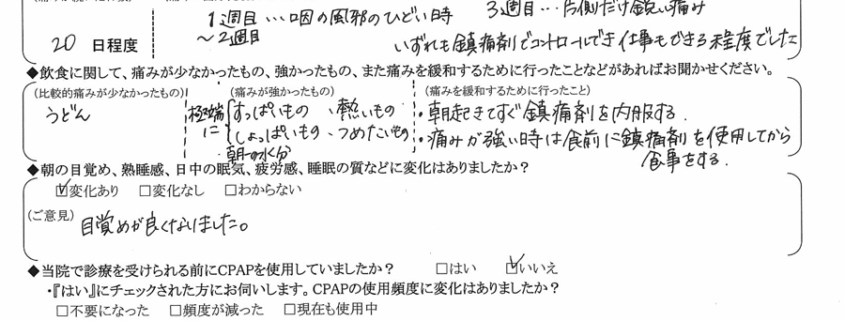 1週目…咽の風邪のひどい時　3週目…片側だけ鋭い痛み
20 日程度　〜2週目
いずれも鎮痛剤でコントロールでき仕事もできる程度でした
◆飲食に関して、痛みが少なかったもの、強かったもの、また痛みを緩和するために行ったことなどがあればお聞かせください。
(比較的痛みが少なかったもの)　(痛みが強かったもの)　(痛みを緩和するために行ったこと)
うどん　極端に　すっぱいもの　、熱いもの　・朝起きてすぐ鎮痛剤を内服する.
しょっぱいもの　、つめたいもの　・痛みが強い時は食前に鎮痛剤を使用してから
・朝の水分　食事をする.
◆朝の目覚め、熟睡感、日中の眠気、疲労感、睡眠の質などに変化はありましたか?
☑変化あり　□変化なし　□わからない
(ご意見)
目覚めが良くなりました。
◆当院で診療を受けられる前にCPAPを使用していましたか?　□はい　☑いいえ
・『はい』にチェックされた方にお伺いします。CPAPの使用頻度に変化はありましたか?
□不要になった　□頻度が減った　□現在も使用中